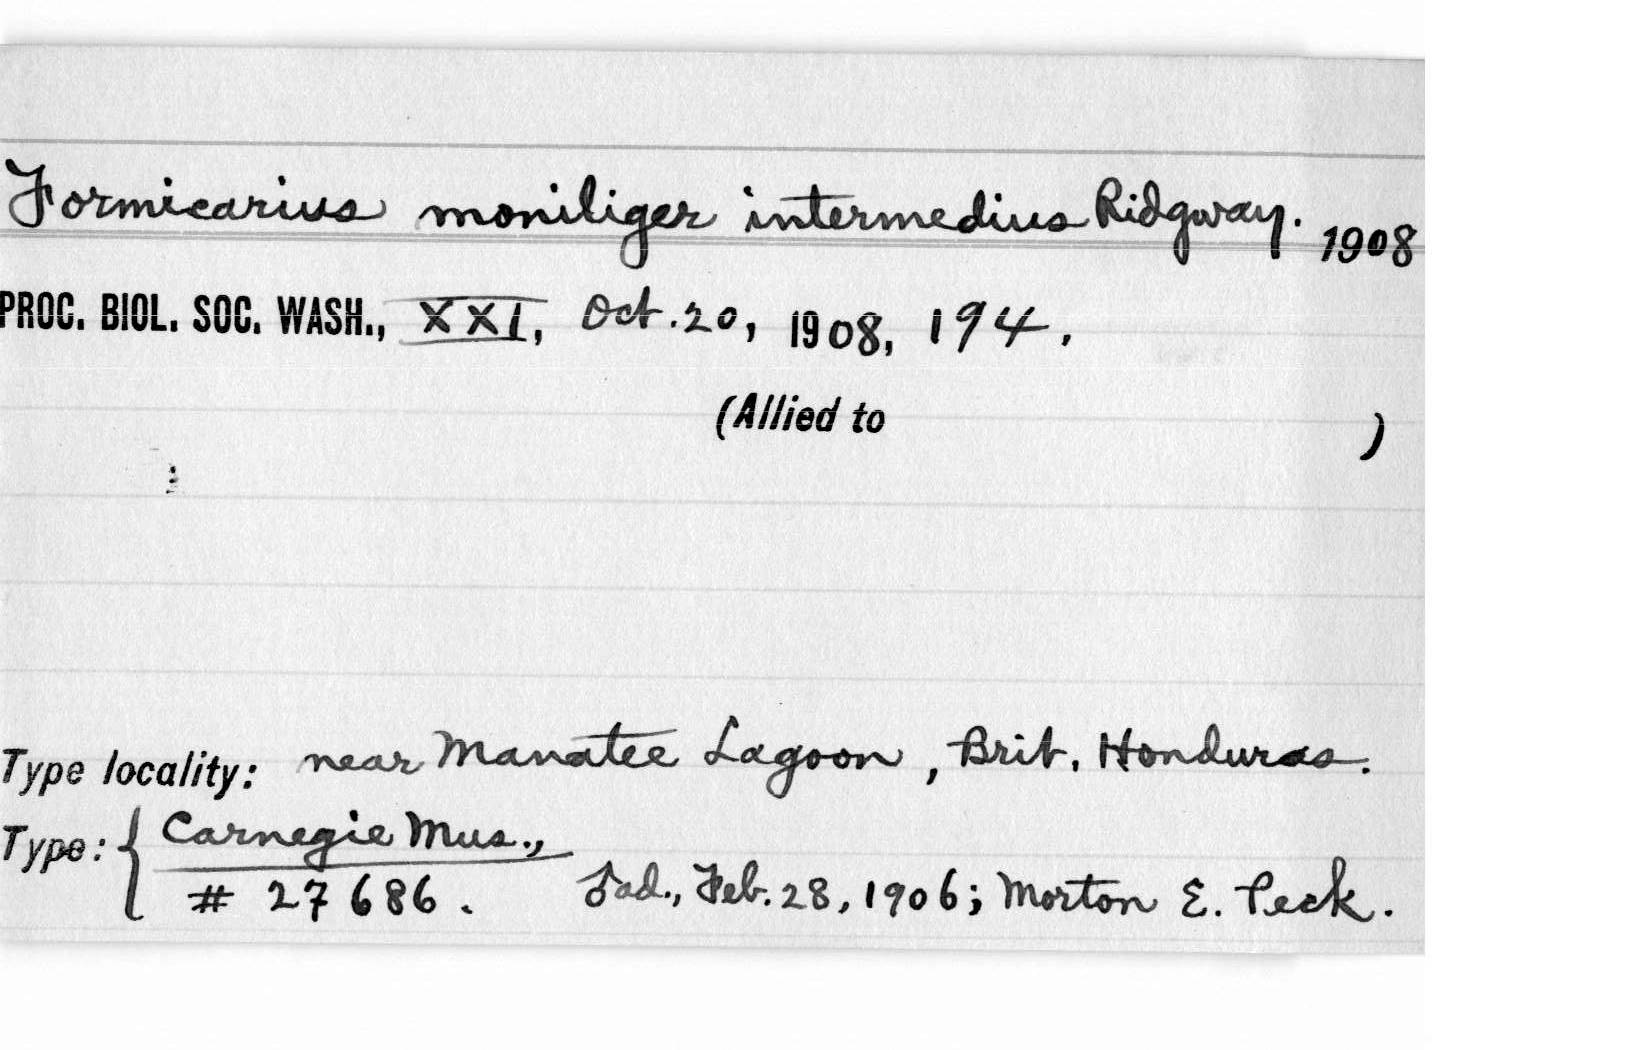 Formicarius moniliger intermedius Ridgway. 1908
PROC. BIOL. SOC. WASH., XXI, Oct. 20, 1908, 194.
(Allied to )
Type locality: near Manatee Lagoon, Brit. Honduras.
Type: { Carnegie Mus.,
# 27686. ♂ ad., Feb. 28, 1906; Morton E. Peck.